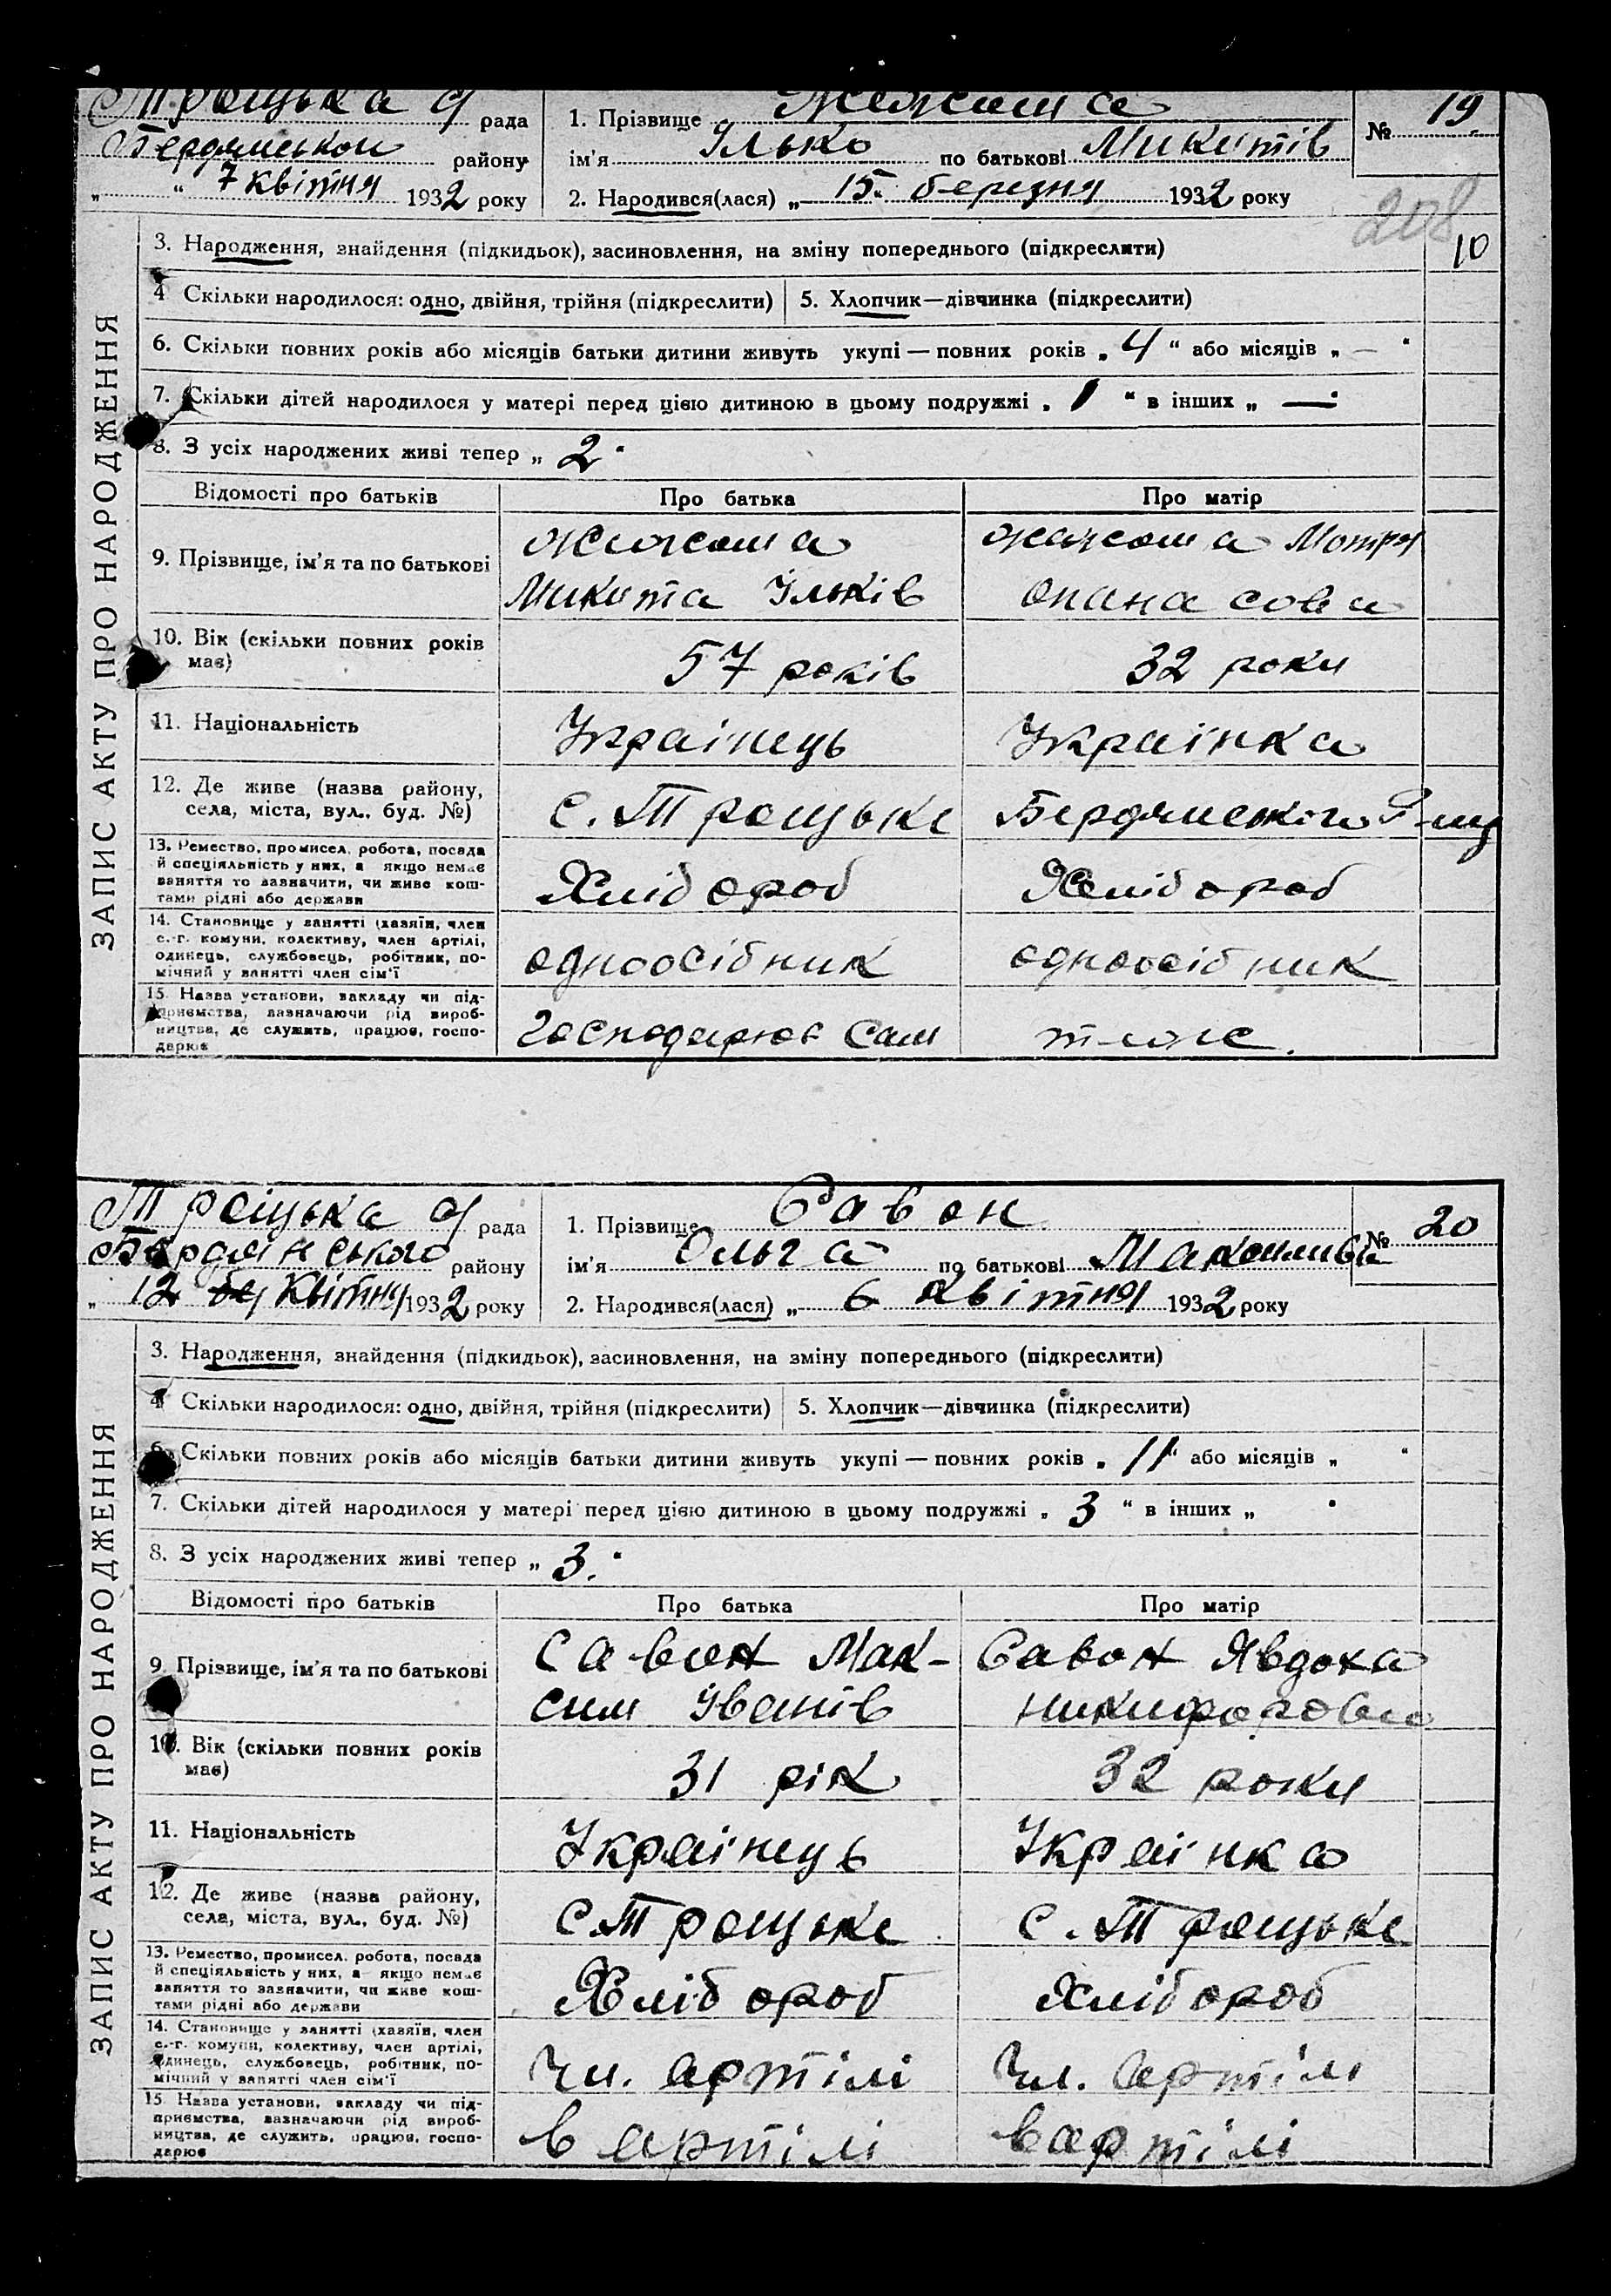 Троцька с/ рада
Бердянської району
„ “ 7 квітня 1932 року
1. Прізвище
ім'я Ілько по батькові Микитів
2. Народився(лася) „ 15 “ березня 1932 року
№ 19
208
10
ЗАПИС АКТУ ПРО НАРОДЖЕННЯ
3. Народження, знайдення (підкидьок), засиновлення, на зміну попереднього (підкреслити)
4 Скільки народилося: одно, двійня, трійня (підкреслити) 5. Хлопчик—дівчинка (підкреслити)
6. Скільки повних років або місяців батьки дитини живуть укупі — повних років „ 4 “ або місяців „ — “
7. Скільки дітей народилося у матері перед цією дитиною в цьому подружжі „ 1 “ в інших „ — “
8. З усіх народжених живі тепер „ 2 “
Відомості про батьків Про батька Про матір
9. Прізвище, ім'я та по батькові
Мотря
Микита Ільків Опанасова
10. Вік (скільки повних років має) 57 років 32 роки
11. Національність Українець Українка
12. Де живе (назва району, села, міста, вул., буд. №) с. Троцьке Бердянського р-ну
13. Ремество, промисел, робота, посада
й спеціяльність у них, а якщо немає
заняття то зазначити, чи живе кош-
тами рідні або держави
Хлібороб Хлібороб
14. Становище у занятті (хазяїн, член
с.-г. комуни, колективу, член артілі,
одинець, службовець, робітник, по-
мічний у занятті член сім'ї
одноосібник одноосібник
15. Назва установи, закладу чи під-
приємства, зазначаючи рід вироб-
ництва, де служить, працює, госпо-
дарює
Господарює сам тоже.
Троцька с/ рада
Бердянського району
„ 12 квітня 1932 року
1. Прізвище Савон
ім'я Ольга по батькові Максимівна
2. Народився(лася) „ 6 квітня 1932 року
№ 20
ЗАПИС АКТУ ПРО НАРОДЖЕННЯ
3. Народження, знайдення (підкидьок), засиновлення, на зміну попереднього (підкреслити)
4 Скільки народилося: одно, двійня, трійня (підкреслити) 5. Хлопчик—дівчинка (підкреслити)
6. Скільки повних років або місяців батьки дитини живуть укупі — повних років „ 11 “ або місяців „ “
7. Скільки дітей народилося у матері перед цією дитиною в цьому подружжі „ 3 “ в інших „ “
8. З усіх народжених живі тепер „ 3. “
Відомості про батьків Про батька Про матір
9 Прізвище, ім'я та по батькові
Савон Мак- Савон Явдоха
сим Іванів Никифорова
10. Вік (скільки повних років має) 31 рік 32 роки
11. Національність Українець Українка
12. Де живе (назва району, села, міста, вул., буд. №) с. Троцьке с. Троцьке
13. Ремество, промисел, робота, посада
й спеціяльність у них, а якщо немає
заняття то зазначити, чи живе кош-
тами рідні або держави
Хлібороб Хлібороб
14. Становище у занятті (хазяїн, член
с.-г. комуни, колективу, член артілі,
одинець, службовець, робітник, по-
мічний у занятті член сім'ї
Чл. артілі Чл. артілі
15 Назва установи, закладу чи під-
приємства, зазначаючи рід вироб-
ництва, де служить, працює, госпо-
дарює
в артілі в артілі